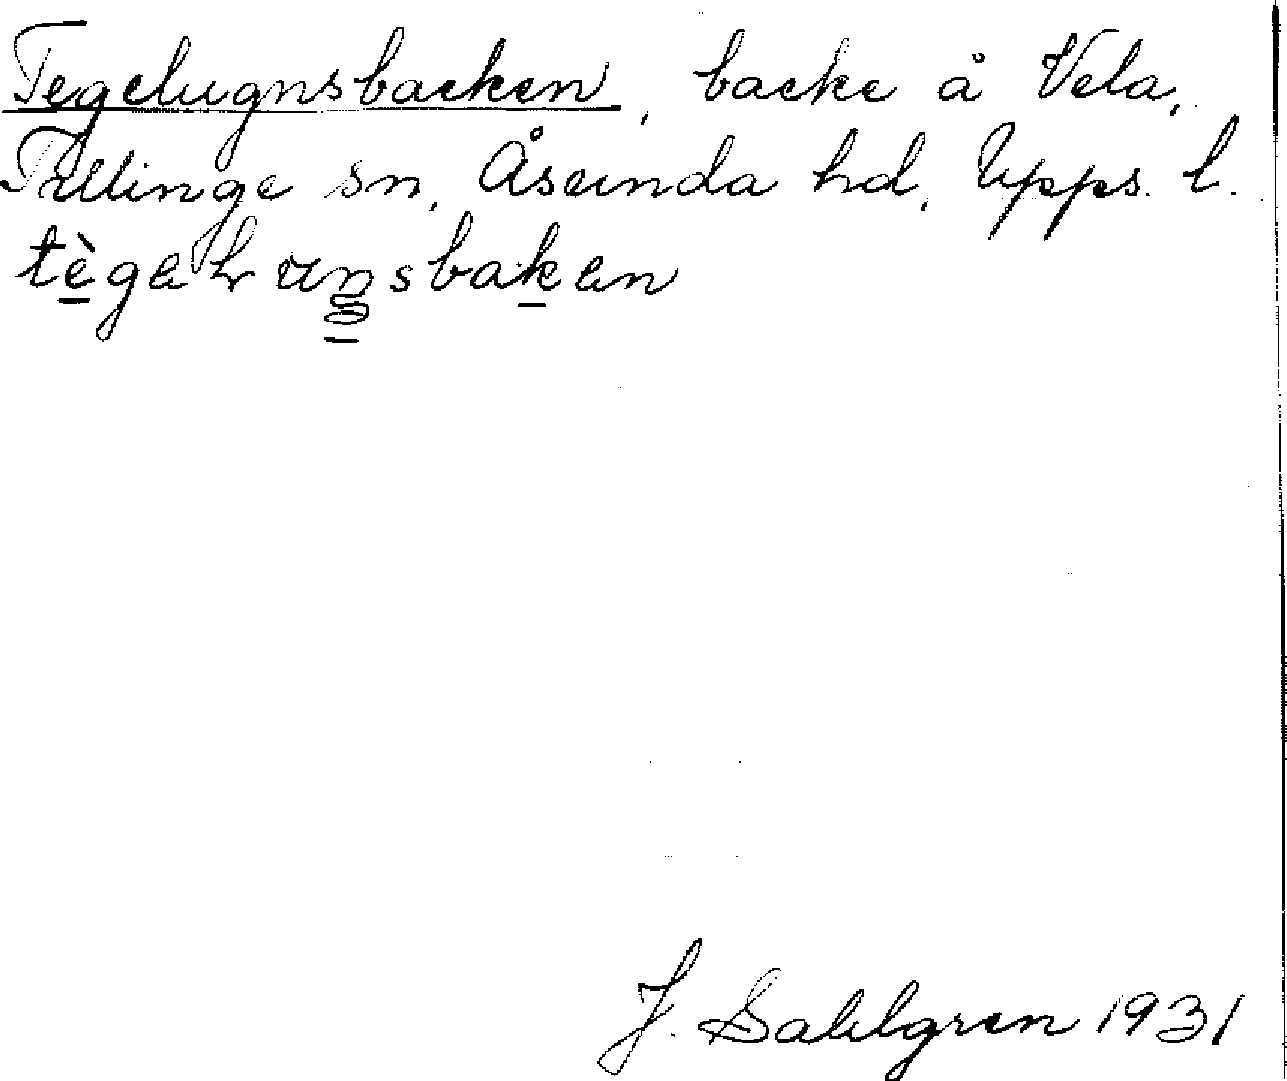 Tegelugnsbacken, backe å Vela,
Tillinge sn, Åsunda hd, Upps. l.
J. Sahlgren 1931